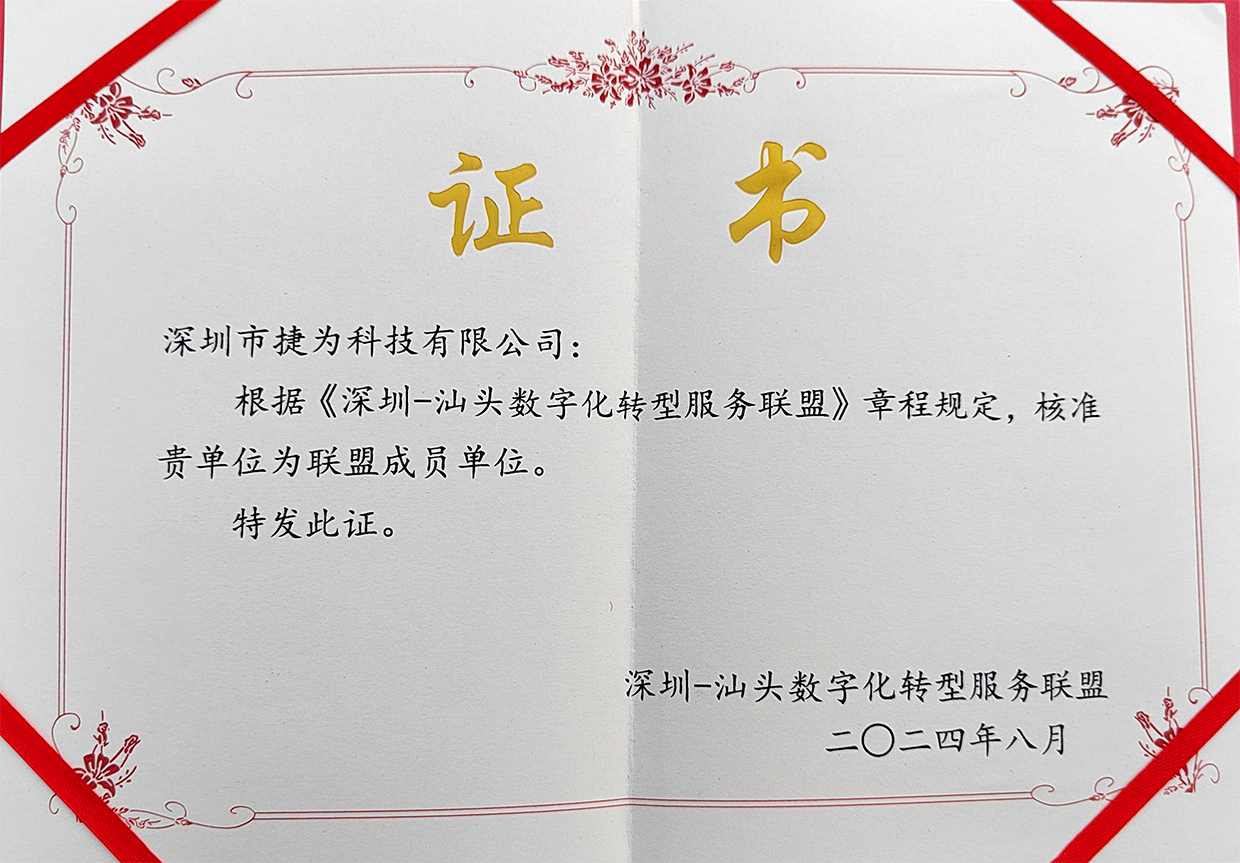 证 书
深圳市捷为科技有限公司：
根据《深圳-汕头数字化转型服务联盟》章程规定，核准
贵单位为联盟成员单位。
特发此证。
深圳-汕头数字化转型服务联盟
二〇二四年八月